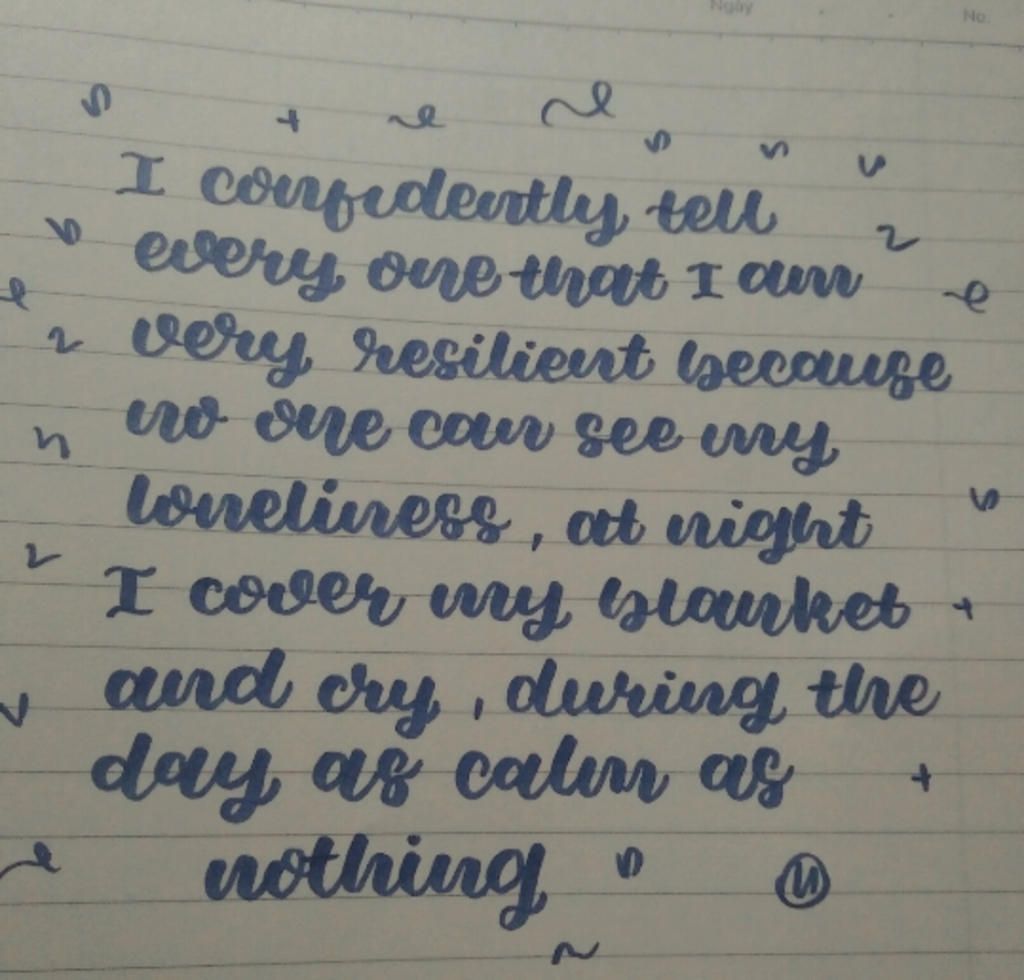 Ngày
No.
I confidently tell
every one that I am
very resilient because
no one can see my
loneliness, at night
I cover my blanket
and cry, during the
day as calm as
nothing